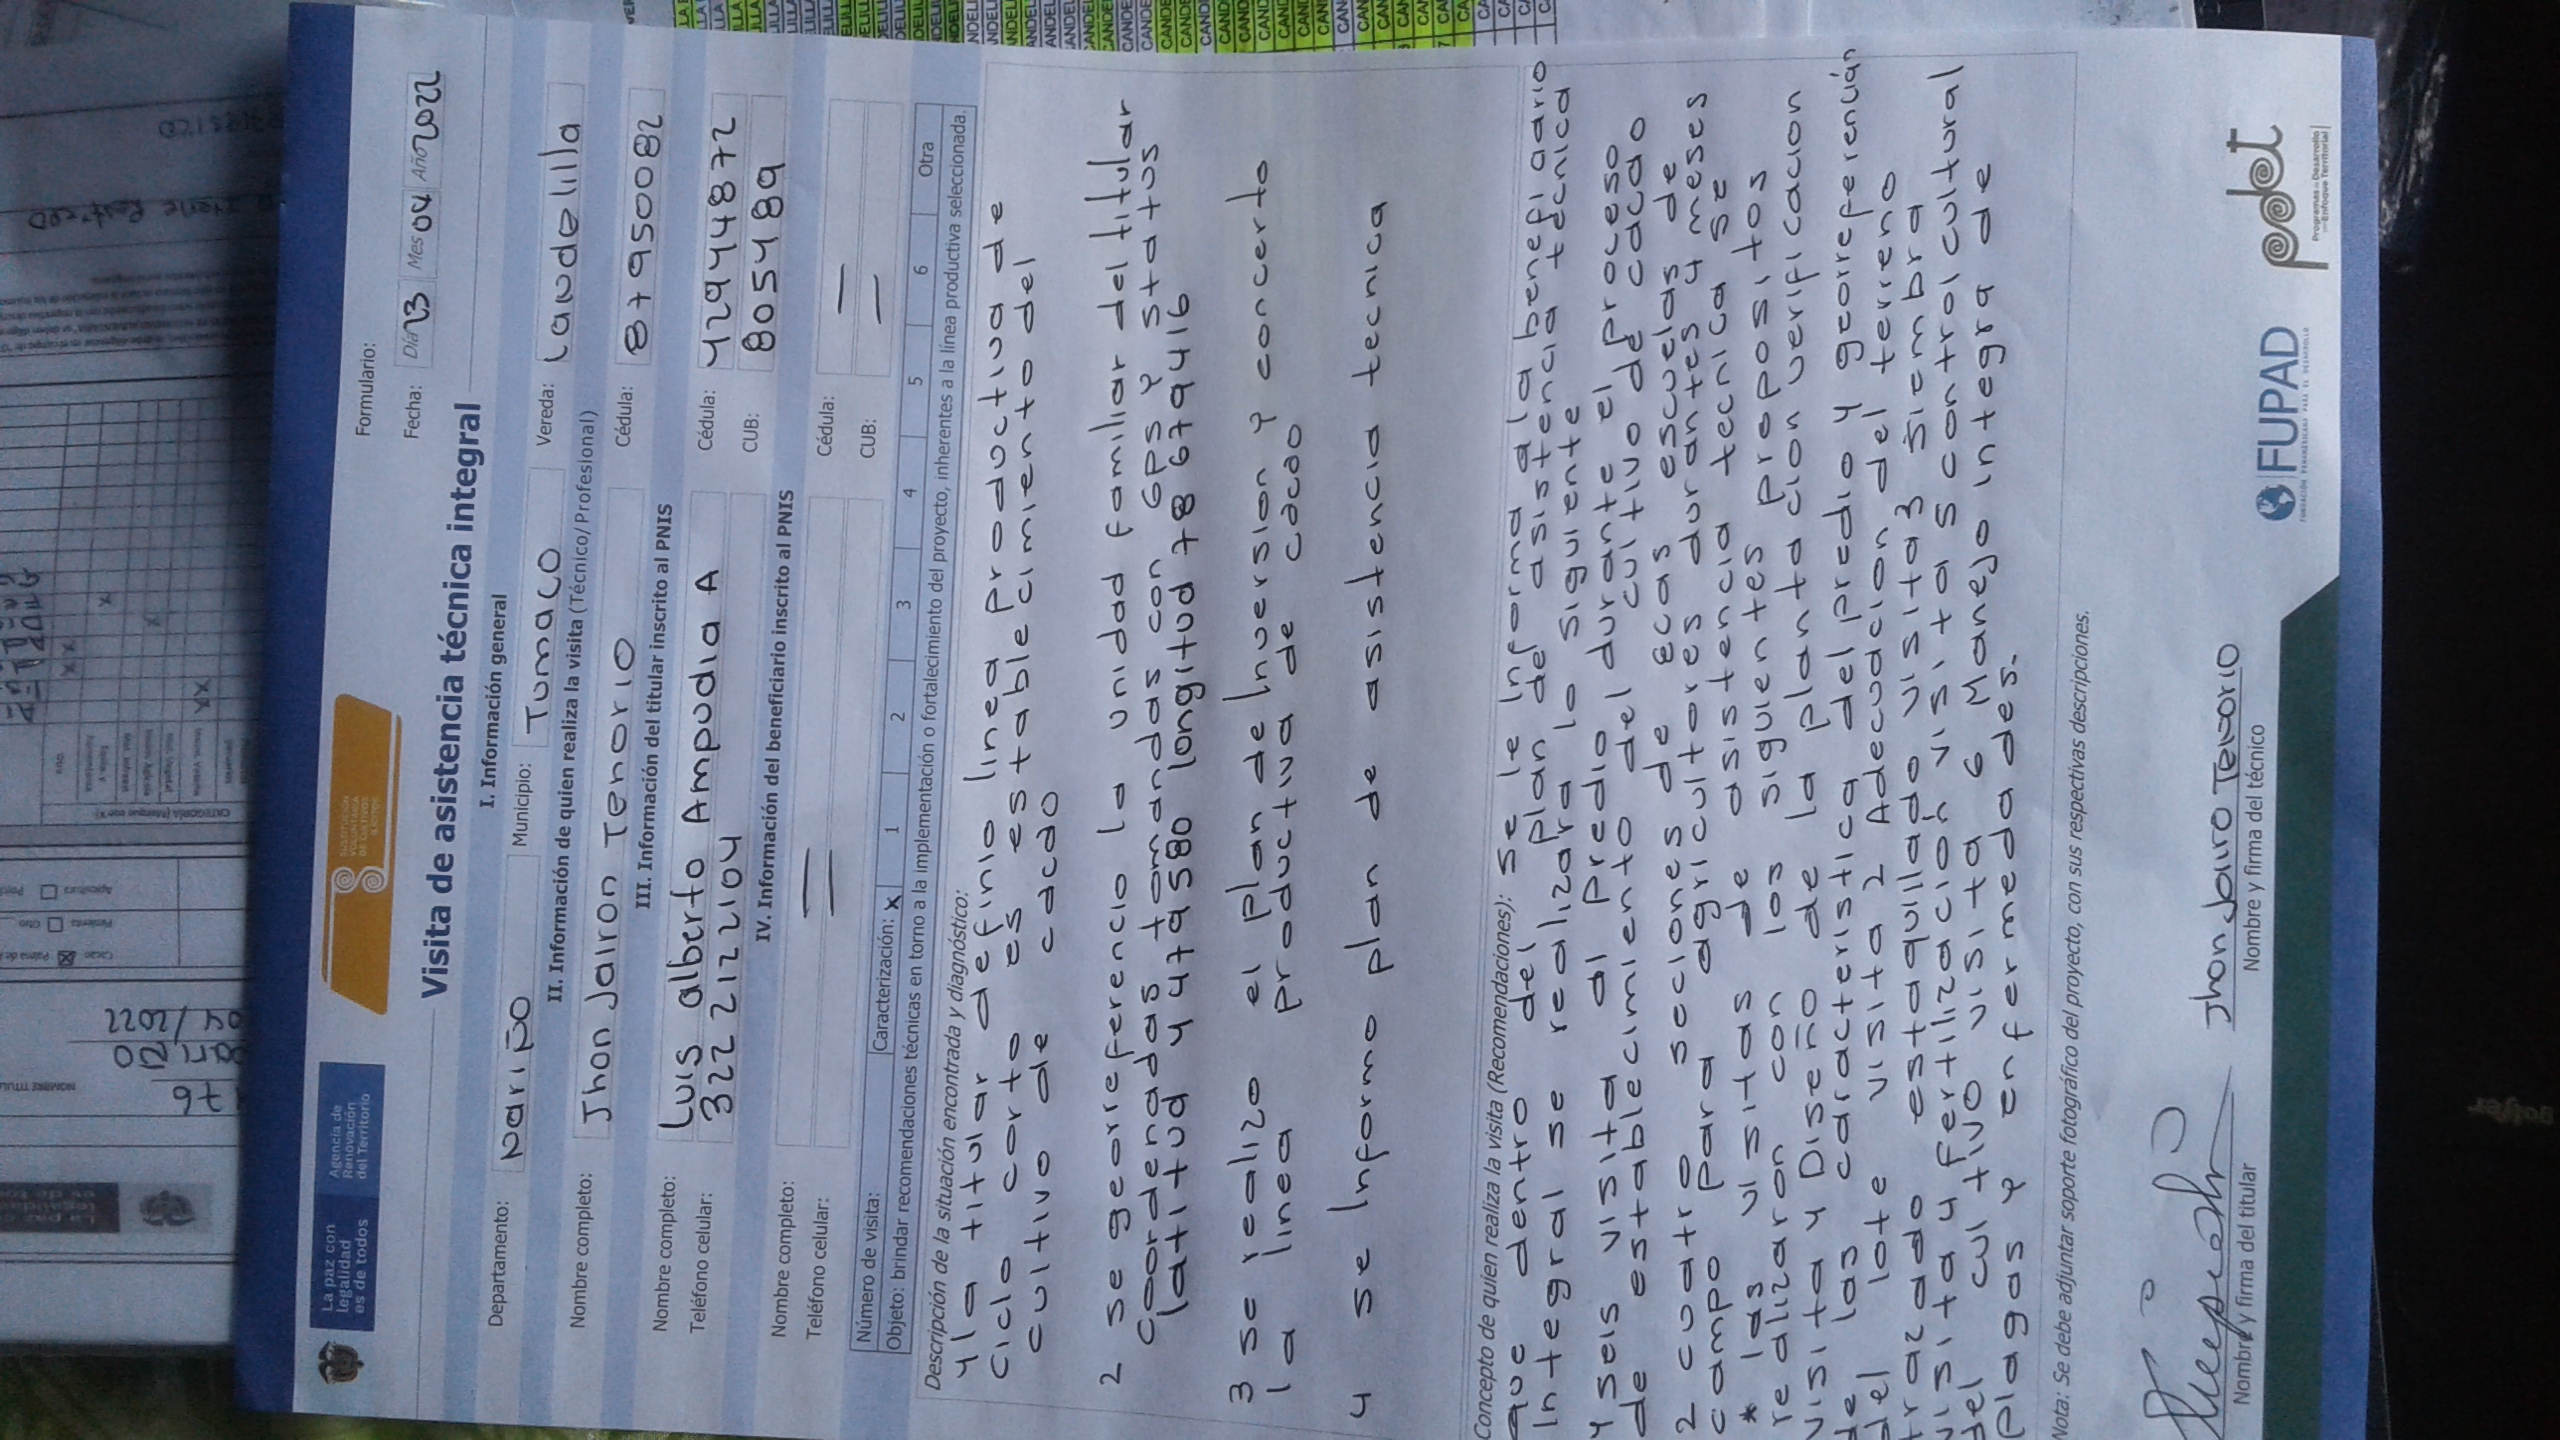 La paz con
legalidad
es de todos
Agencia de
Renovación
del Territorio
SUSTITUCIÓN
VOLUNTARIA
DE CULTIVOS
ILÍCITOS
Formulario:
Fecha: Día 23 Mes 04 Año 2022
Visita de asistencia técnica integral
I. Información general
Departamento: Nariño Municipio: Tumaco Vereda: Candelilla
II. Información de quien realiza la visita (Técnico/Profesional)
Nombre completo: Jhon Jairon Tenorio Cédula: 87950082
III. Información del titular inscrito al PNIS
Nombre completo: Luis alberto Ampudia A Cédula: 42944872
Teléfono celular: 3222122104 CUB: 805489
IV. Información del beneficiario inscrito al PNIS
Nombre completo: — Cédula: —
Teléfono celular: — CUB: —
Número de visita: Caracterización: x 1 2 3 4 5 6 Otra
Objeto: brindar recomendaciones técnicas en torno a la implementación o fortalecimiento del proyecto, inherentes a la línea productiva seleccionada.
Descripción de la situación encontrada y diagnóstico:
1 la titular definio linea productiva de
ciclo corto es establecimiento del
cultivo de cacao
2 se georeferencio la unidad familiar del titular
coordenadas tomandas con GPS y status
latitud 1 479580 longitud 78 679416
3 se realizo el plan de Inversion y concerto
la linea productiva de cacao
4 se Informo plan de asistencia tecnica
Concepto de quien realiza la visita (Recomendaciones): se le Informa a la benefi ciario
que dentro del plan de asistencia técnica
Integral se realizara lo siguiente
1 seis visita al predio durante el proceso
de establecimiento del cultivo de cacao
2 cuatro secciones de Ecas escuelas de
campo para agricultores durantes 4 meses
* las visitas de asistencia tecnica se
realizaron con los siguientes propositos
visita 1 Diseño de la planta cion verificacion
de las caracteristica del predio y georreferención
del lote visita 2 Adecuacion del terreno
trazado estaquillado visita 3 siembra
visita 4 fertilización visita 5 control cultural
del cultivo visita 6 Manejo Integra de
plagas y enfermeda des.
Nota: Se debe adjuntar soporte fotográfico del proyecto, con sus respectivas descripciones.
Jhon Jairo Tenorio
Nombre y firma del titular
Nombre y firma del técnico
FUPAD
FUNDACIÓN PANAMERICANA PARA EL DESARROLLO
pdet
Programas de Desarrollo
con Enfoque Territorial